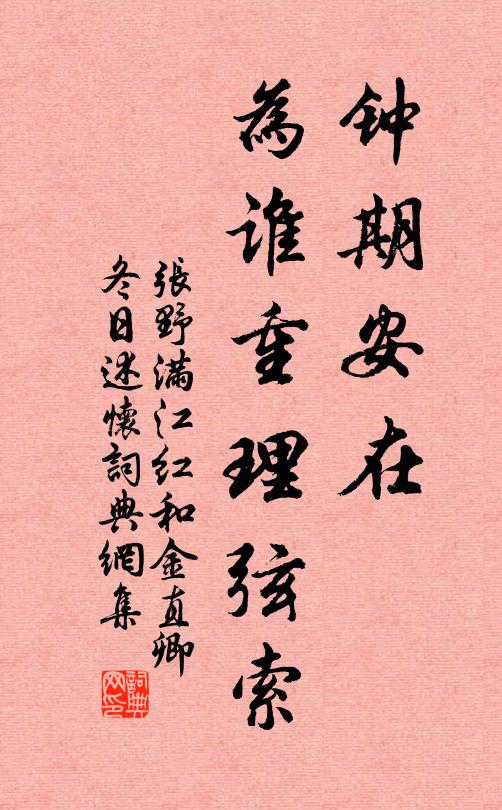 钟期安在
為谁重理弦索
張野满江红和金直卿
冬日述懷詞典網集
詞典
网印